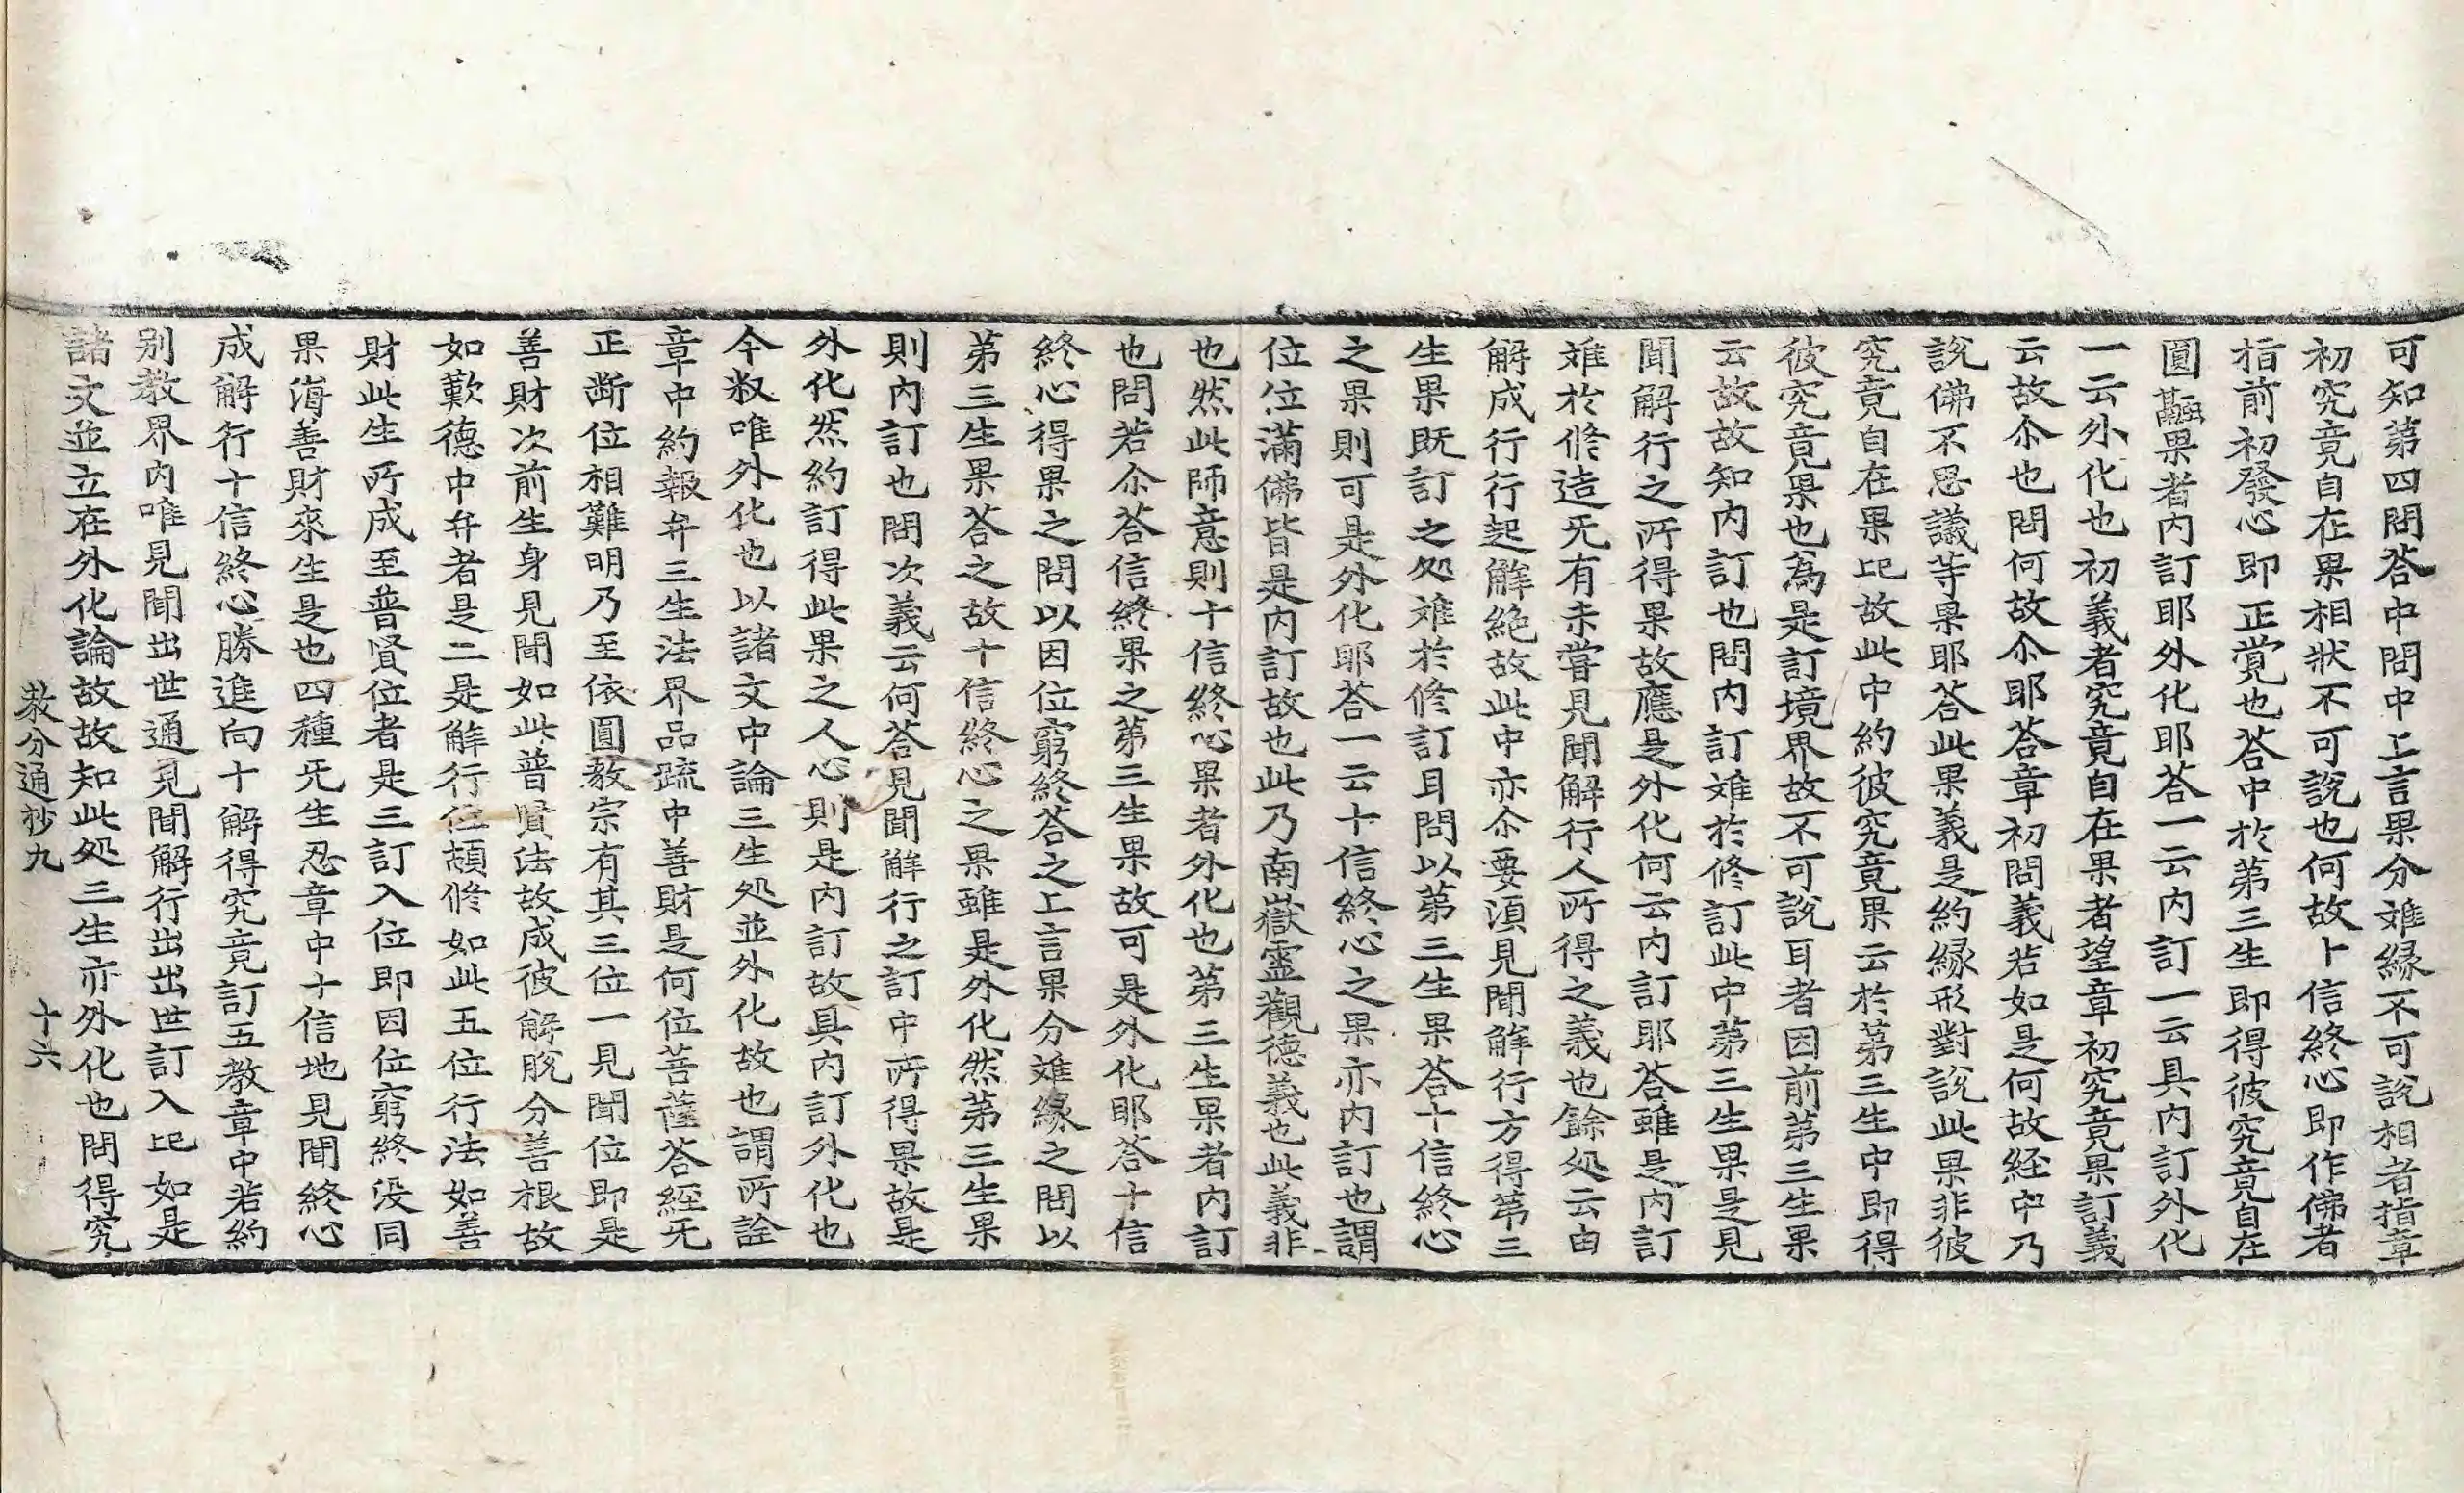 可知第四問荅中問中上言果分难縁不可說相者指章
初究竟自在果相狀不可說也何故卜信終心即作佛者
指前初發心即正覺也荅中於第三生即得彼究竟自在
圓融果者内訂耶外化耶荅一云内訂一云具内訂外化
一云外化也初義者究竟自在果者望章初究竟果訂義
云故尒也問何故尒耶荅章初問義若如是何故経中乃
說佛不思議等果耶荅此果義是約縁形對說此果非彼
究竟自在果㔭故此中約彼究竟果云於第三生中即得
彼究竟果也為是訂境界故不可說耳者因前第三生果
云故故知内訂也問内訂难於修訂此中第三生果是見
聞解行之所得果故應是外化何云内訂耶荅雖是内訂
难於修造旡有未甞見聞解行人所得之義也餘処云由
解成行行起解絶故此中亦尒要湏見聞觧行方得第三
生果既訂之処难於修訂耳問以第三生果荅十信終心
之果則可是外化耶荅一云十信終心之果亦内訂也謂
位位滿佛皆是内訂故也此乃南嶽靈觀德義也此義非
也然此師意則十信終心果者外化也第三生果者内訂
也問若尒荅信終果之第三生果故可是外化耶荅十信
終心得果之問以因位窮終荅之上言果分难縁之問以
第三生果荅之故十信終心之果雖是外化然第三生果
則内訂也問次義云何荅見聞觧行之訂中所得果故是
外化然約訂得此果之人心則是内訂故具内訂外化也
今叙唯外化也以諸文中論三生処並外化故也謂所詮
章中約報弁三生法界品疏中善財是何位菩薩荅経旡
正断位相難明乃至依圓教宗有其三位一見聞位即是
善財次前生身見聞如此普賢法故成彼解脫分善根故
如歎德中弁者是二是觧行位頓修如此五位行法如善
財此生所成至普賢位者是三訂入位即因位窮終没同
果海善財來生是也四種旡生忍章中十信地見聞終心
成解行十信終心勝進向十解得究竟訂五教章中若約
别教界内唯見聞出世通見聞解行出出世訂入㔭如是
諸文並立在外化論故故知此処三生亦外化也問得究
教分通抄九　十六